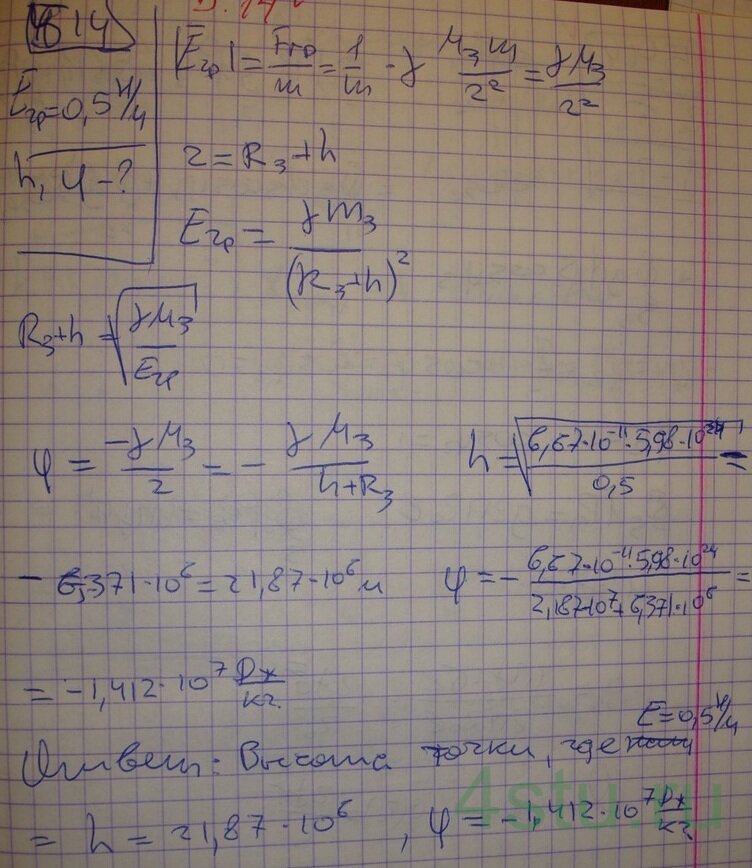 514
|E̅гр| = Fгр/m = 1/m · γ Mз m/r² = γMз/r²
E̅гр = 0,5 Н/кг
h, φ - ?
r = Rз + h
Eгр = γ mз/(Rз + h)²
Rз + h = √(γMз/Eгр)
φ = -γMз/r = - γMз/(h + Rз)
h = √(6,67·10⁻¹¹·5,98·10²⁴/0,5) =
- 6,371·10⁶ = 21,87·10⁶ м
φ = - 6,67·10⁻¹¹·5,98·10²⁴/(2,187·10⁷ + 6,371·10⁶) =
= -1,412·10⁷ Дж/кг
E = 0,5 Н/кг
Ответ: Высота точки, где
= h = 21,87·10⁶, φ = -1,412·10⁷ Дж/кг
4stu.ru